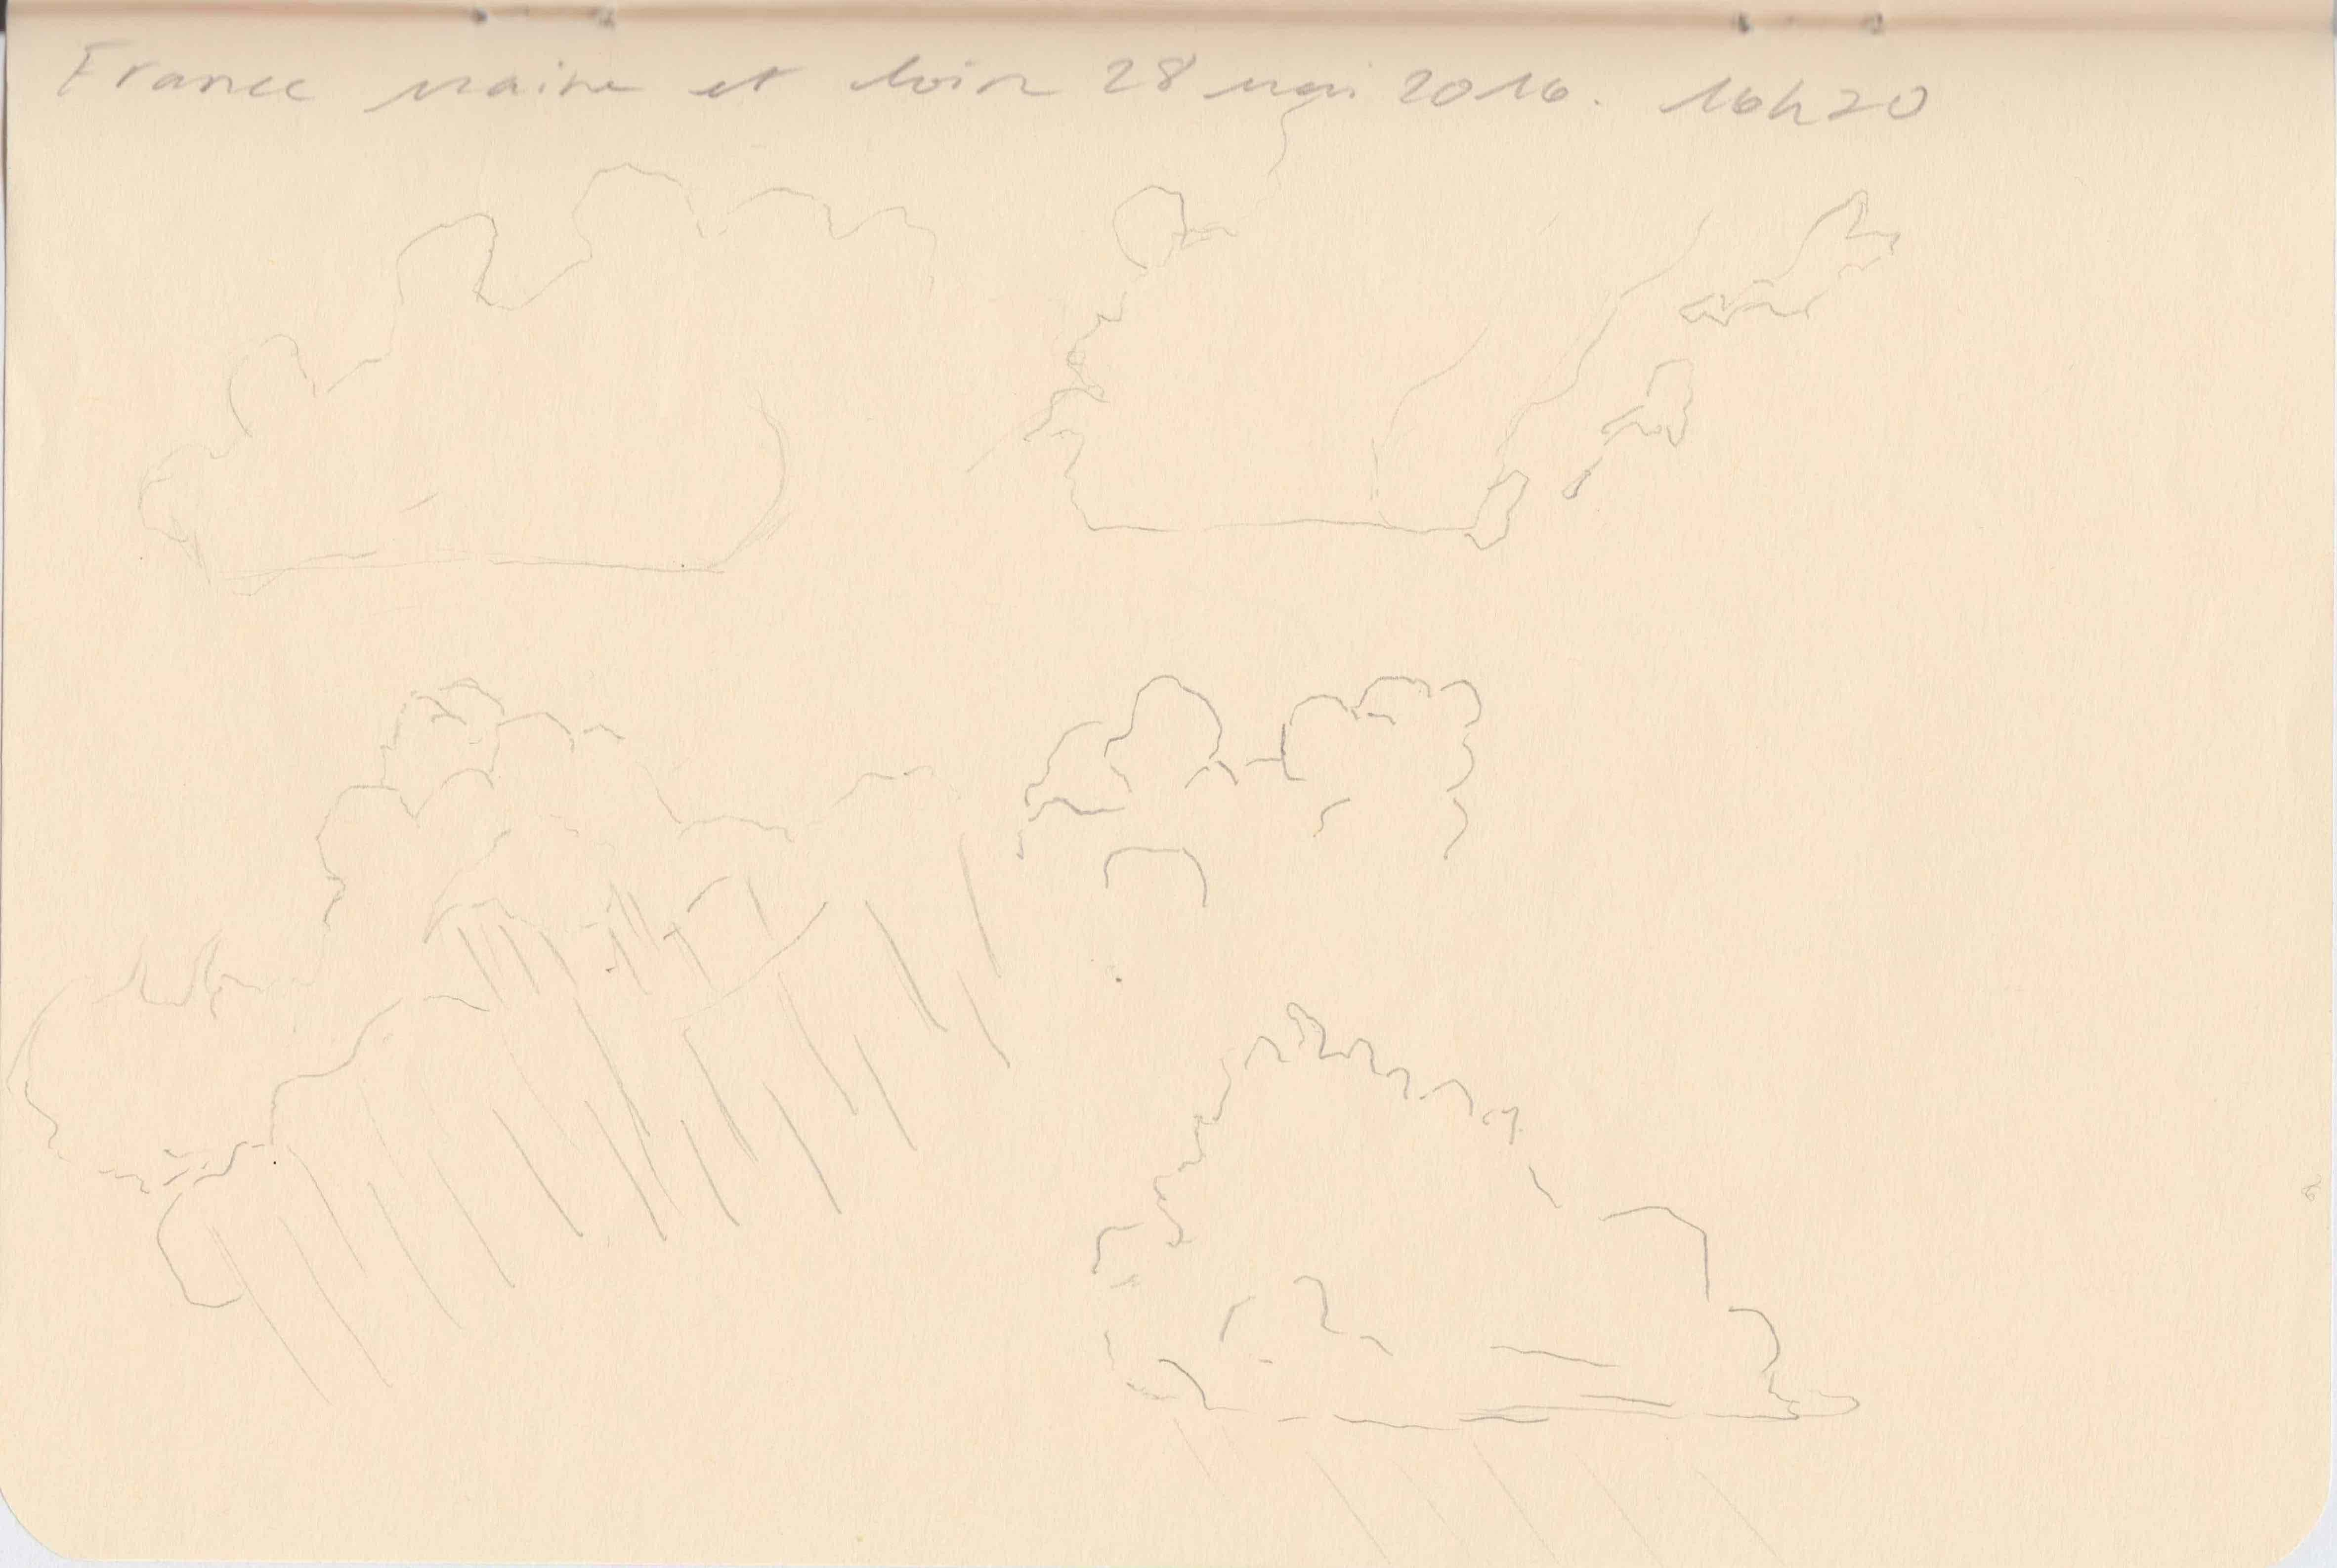 France maine et loire 28 mai 2016. 16h20